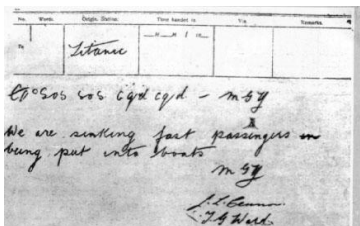 No. Words. Origin. Station. Time handed in Via Remarks.
To Titanic — H. M / 19__
sos sos cqd cqd - MGY
We are sinking fast passengers are
being put into boats
MGY